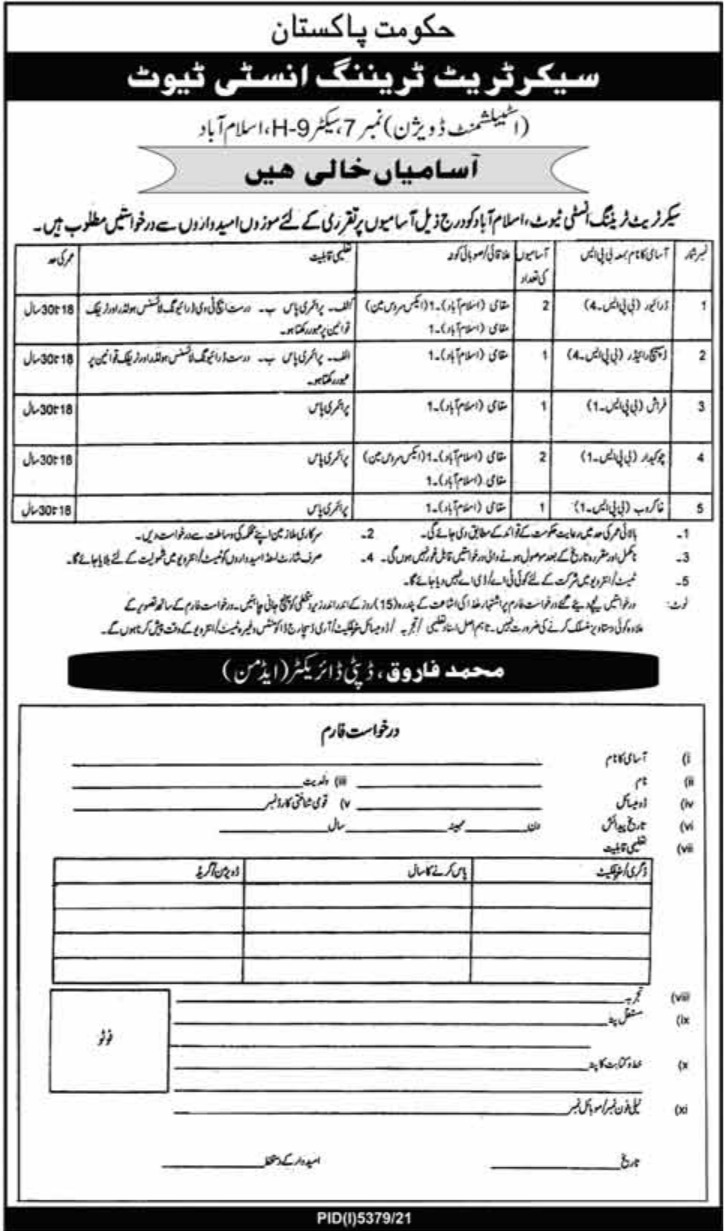 حکومت پاکستان
سیکرٹریٹ ٹریننگ انسٹی ٹیوٹ
(اسٹیبلشمنٹ ڈویژن) نمبر 7، سیکٹر H-9، اسلام آباد
آسامیاں خالی ھیں
سیکرٹریٹ ٹریننگ انسٹی ٹیوٹ، اسلام آباد کو درج ذیل آسامیوں پر تقرری کے لئے موزوں امیدواروں سے درخواستیں مطلوب ہیں۔
نمبر شمار آسامی کا نام بمعہ بی پی ایس آسامیوں کی تعداد علاقائی/صوبائی کوٹہ تعلیمی قابلیت عمر کی حد
1 ڈرائیور (بی پی ایس۔4) 2 مقامی (اسلام آباد)۔1 (ایکس سروس مین) الف۔ پرائمری پاس ب۔ درست ایچ ٹی وی ڈرائیونگ لائسنس ہولڈر اور ٹریفک 18 تا 30 سال
مقامی (اسلام آباد)۔1 قوانین پر عبور رکھتا ہو۔
2 ڈسپیچ رائیڈر (بی پی ایس۔4) 1 مقامی (اسلام آباد)۔1 الف۔ پرائمری پاس ب۔ درست ڈرائیونگ لائسنس ہولڈر اور ٹریفک قوانین پر 18 تا 30 سال
عبور رکھتا ہو۔
3 فراش (بی پی ایس۔1) 1 مقامی (اسلام آباد)۔1 پرائمری پاس 18 تا 30 سال
4 چوکیدار (بی پی ایس۔1) 2 مقامی (اسلام آباد)۔1 (ایکس سروس مین) پرائمری پاس 18 تا 30 سال
مقامی (اسلام آباد)۔1
5 خاکروب (بی پی ایس۔1) 1 مقامی (اسلام آباد)۔1 پرائمری پاس 18 تا 30 سال
1۔ بالائی عمر کی حد میں رعایت حکومت کے قوائد کے مطابق دی جائے گی۔ 2۔ سرکاری ملازمین اپنے محکمہ کی وساطت سے درخواست دیں۔
3۔ نامکمل اور مقررہ تاریخ کے بعد موصول ہونے والی درخواستیں قابل غور نہیں ہوں گی۔ 4۔ صرف شارٹ لسٹڈ امیدواروں کو ٹیسٹ/انٹرویو میں شمولیت کے لئے بلایا جائے گا۔
5۔ ٹیسٹ/انٹرویو میں شرکت کے لئے کوئی ٹی اے/ڈی اے نہیں دیا جائے گا۔
نوٹ: درخواستیں نیچے دیئے گئے درخواست فارم پر اشتہار ھذا کی اشاعت کے پندرہ (15) روز کے اندر اندر زیر دستخطی کو پہنچ جانی چاہئیں۔ درخواست فارم کے ساتھ تصویر کے
علاوہ کوئی دستاویز منسلک کرنے کی ضرورت نہیں۔ تاہم اصل اسناد تعلیمی /تجربہ /ڈومیسائل سرٹیفکیٹ/آرمی ڈسچارج ڈاکومنٹس وغیرہ ٹیسٹ/انٹرویو کے وقت پیش کرنا ہوں گے۔
محمد فاروق، ڈپٹی ڈائریکٹر (ایڈمن)
درخواست فارم
i) آسامی کا نام
ii) نام iii) ولدیت
iv) ڈومیسائل v) قومی شناختی کارڈ نمبر
vi) تاریخ پیدائش دن مہینہ سال
vii) تعلیمی قابلیت
ڈگری/سرٹیفکیٹ پاس کرنے کا سال ڈویژن/گریڈ
viii) تجربہ
ix) مستقل پتہ
فوٹو
x) خط و کتابت کا پتہ
xi) ٹیلی فون نمبر/موبائل نمبر
تاریخ امیدوار کے دستخط
PID(I)5379/21